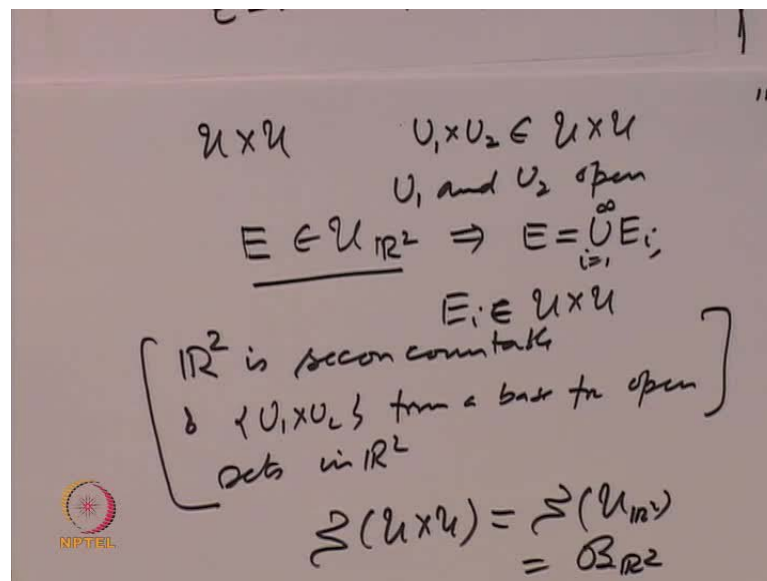 𝒰 × 𝒰 U₁ × U₂ ∈ 𝒰 × 𝒰
U₁ and U₂ open
E ∈ 𝒰_ℝ² ⇒ E = ⋃_{i=1}^∞ E_i,
E_i ∈ 𝒰 × 𝒰
[ ℝ² is secon countable
& {U₁ × U₂} form a base for open ]
sets in ℝ²
𝒮(𝒰 × 𝒰) = 𝒮(𝒰_ℝ²)
= ℬ_ℝ²
NPTEL